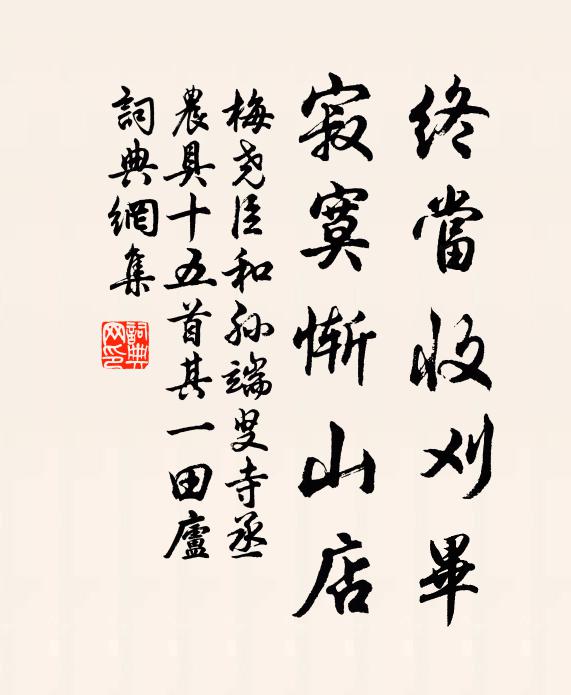 終當收刈畢
寂寞慚山店
梅堯臣和孙端叟寺丞
農具十五首其一田廬
詞典網集
詞典
网印